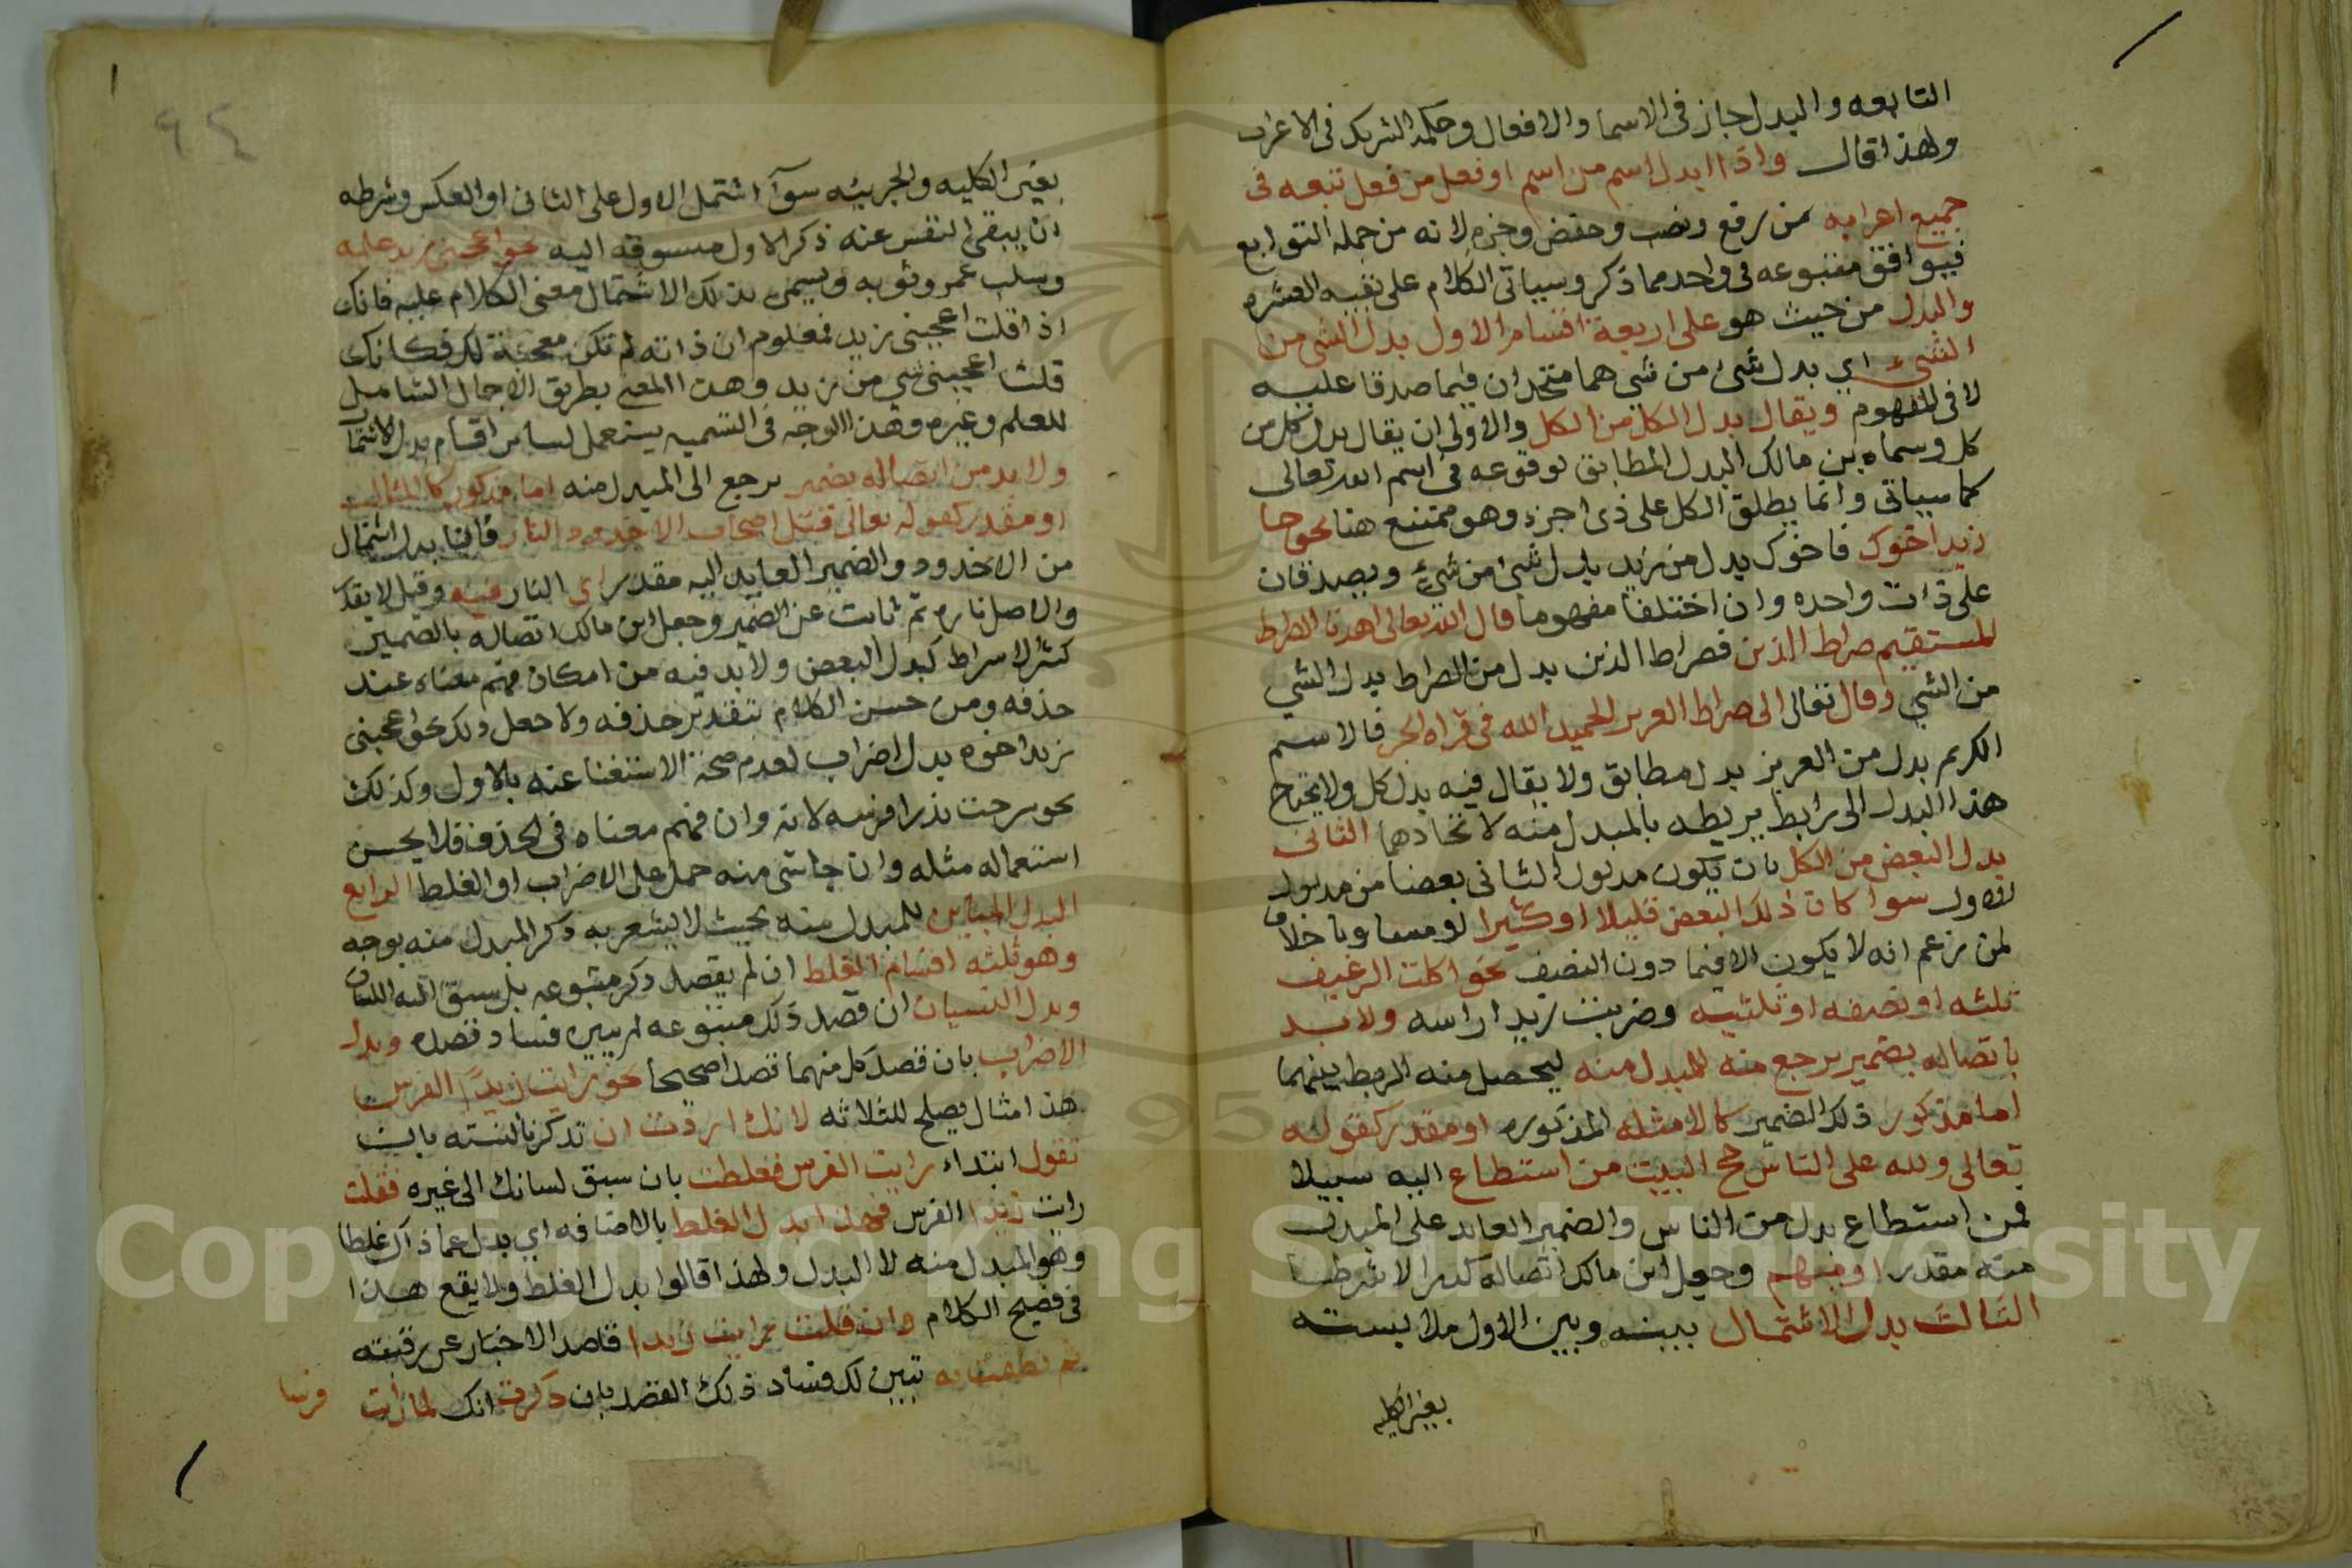 التابعه والبدل جاز فى الاسما والافعال وحكمه الشريك فى الاعراب
ولهذا قال واذا ابدل اسم من اسم او فعل من فعل تبعه فى
جميع اعرابه من رفع ونصب وخفض وجزم لانه من جمله التوابع
فيوافق متبوعه فى واحد مما ذكر وسياتى الكلام على بقيه العشره
والبدل من حيث هو على اربعة اقسام الاول بدل الشى من
الشىء اي بدل شئ من شى هما متحدان فيما صدقا عليه
لا فى المفهوم ويقال بدل الكل من الكل والاولى ان يقال بدل كل من
كل وسماه بن مالك البدل المطابق لوقوعه فى اسم الله تعالى
كما سياتى وانما يطلق الكل على ذى اجزء وهو ممتنع هنا نحو جا
زيد اخوك فاخوك بدل من زيد بدل شئ من شئ ويصدقان
على ذات واحده وان اختلفا مفهوما قال الله تعالى اهدنا الصراط
المستقيم صراط الذين فصراط الذين بدل من الصراط بدل الشي
من الشي وقال تعالى الى صراط العزيز الحميد الله فى قراه الجر فالاسم
الكريم بدل من العزيز بدل مطابق ولا يقال فيه بدل كل ولا يحتاج
هذا البدل الى رابط يربطه بالمبدل منه لاتحادهما الثانى
بدل البعض من الكل بان يكون مدلول الثانى بعضا من مدلول
الاول سوا كان ذلك البعض قليلا او كثيرا او مساويا خلافا
لمن زعم انه لا يكون الا فيما دون النصف نحو اكلت الرغيف
ثلثه او نصفه او ثلثيه وضربت زيدا راسه ولا بد
باتصاله بضمير يرجع منه للمبدل منه ليحصل منه الربط بينهما
اما مذكور ذلك الضمير كالامثله المذكوره او مقدر كقوله
تعالى ولله على الناس حج البيت من استطاع اليه سبيلا
فمن استطاع بدل من الناس والضمير العايد على المبدل
منه مقدر او منهم وجعل ابن مالك اتصاله كثيرا لا شرطا
الثالث بدل الاشتمال بينه وبين الاول ملابسته
بغير الكليه
بغير الكليه والجزييه سوآ اشتمل الاول على الثانى او العكس وشرطه
ان يبقى النفس عنه ذكر الاول مسوقه اليه نحو اعجبنى زيد علمه
وسلب عمرو ثوبه وسمى بذلك الاشتمال معنى الكلام عليه فانك
اذا قلت اعجبنى زيد فمعلوم ان ذاته لم تكن معجبة لك فكانك
قلت اعجبنى شي من زيد وهذا المعنى بطريق الاجمال الشامل
للعلم وغيره وهذا الوجه فى التسميه يستعمل لساير اقسام بدل الاشتمال
ولا بد من اتصاله بضمير يرجع الى المبدل منه اما مذكور كالمثال
او مقدر كقوله تعالى قتل اصحاب الاخدود النار فالنار بدل اشتمال
من الاخدود والضمير العايد اليه مقدر اي النار فيه وقيل لا يقدر
والاصل ناره ثم نابت عن الضمير وجعل ابن مالك اتصاله بالضمير
كثيرا لا شرط كبدل البعض ولا بد فيه من امكان فهم معناه عند
حذفه ومن حسن الكلام بتقدير حذفه ولا جعل ولذلك نحو اعجبنى
زيد اخوه بدل اضراب لعدم صحة الاستغنا عنه بالاول وكذلك
نحو سرجت زيدا فرسه لانه وان فهم معناه فى الحذف فلا يحسن
استعماله مثله وان جا شى منه حمل على الاضراب او الغلط الرابع
البدل المباين للمبدل منه بحيث لا يشعر به ذكر المبدل منه بوجه
وهو ثلثه اقسام الغلط ان لم يقصد ذكر متبوعه بل سبق اليه اللسان
وبدل النسيان ان قصد ذكر متبوعه ثم تبين فساد قصده وبدل
الاضراب بان قصد كل منهما قصدا صحيحا نحو رايت زيدًا الفرس
هذا مثال يصلح للثلاثه لانك اردت ان تذكر بالنسته بان
تقول ابتداء رايت الفرس فغلطت بان سبق لسانك الى غيره فقلت
رايت زيدا الفرس فهذا بدل الغلط بالاضافه اي بدل عما ذكر غلطا
وهو المبدل منه لا البدل ولهذا قالوا بدل الغلط ولا يقع هذا
فى فصيح الكلام وان قلت رايت زيدا قاصد الاخبار عن رؤيته
ثم نطقت به تبين لك فساد ذلك القصد بان ذكرت انك لما رايت فرسا
٩٤
Copyright © King Saud University